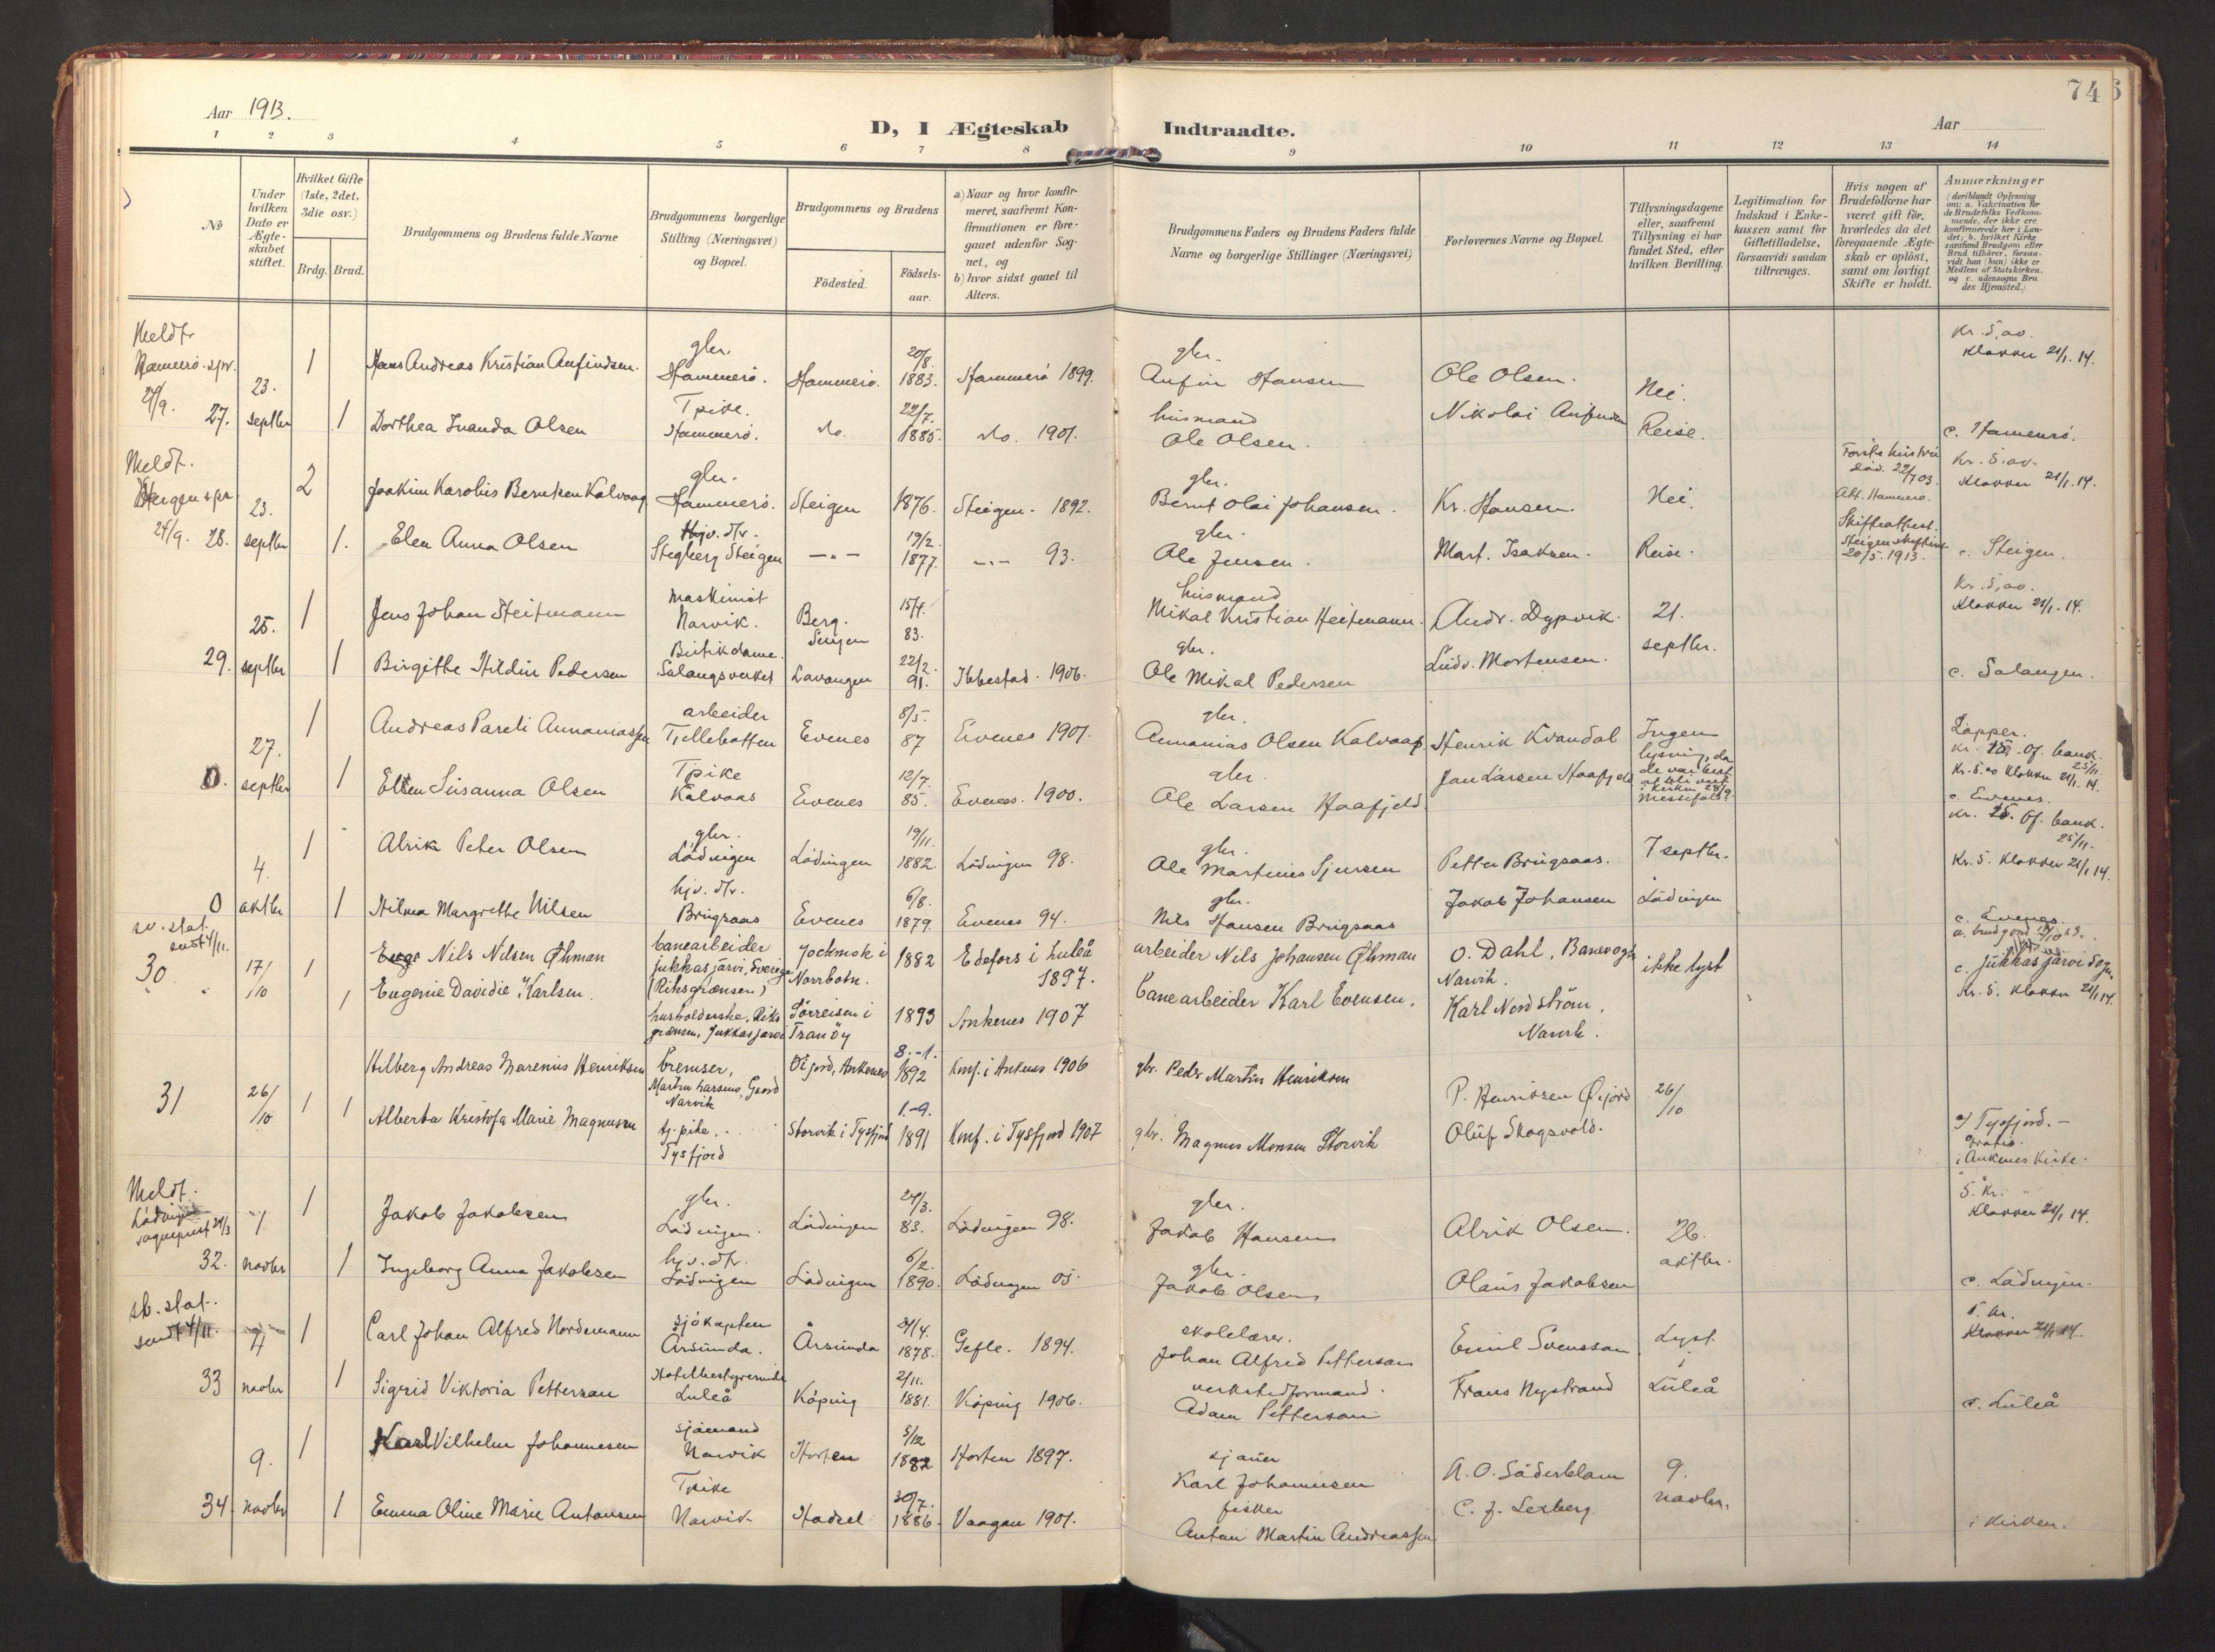 74
Aar 1913.
D, I Ægteskab Indtraadte.
Aar
1 2 3 4 5 6 7 8 9 10 11 12 13 14
No
Under hvilken Dato er Ægte-skabet stiftet.
Hvilket Gifte (1ste, 2det, 3die osv.)
Brdg. Brud.
Brudgommens og Brudens fulde Navne
Brudgommens borgerlige Stilling (Næringsvei) og Bopæl.
Brudgommens og Brudens
Födested. Födsels-aar.
a) Naar og hvor konfir-meret, saafremt Kon-firmationen er fore-gaaet udenfor Sog-net, og
b) hvor sidst gaaet til Alters.
Brudgommens Faders og Brudens Faders fulde Navne og borgerlige Stillinger (Næringsvei)
Forlovernes Navne og Bopæl.
Tillysningsdagene eller, saafremt Tillysning ei har fundet Sted, efter hvilken Bevilling.
Legitimation for Indskud i Enke-kassen samt for Giftetilladelse, forsaavidt saadan tiltrænges.
Hvis nogen af Brudefolkene har været gift för, hvorledes da det foregaaende Ægte-skab er oplöst, samt om lovligt Skifte er holdt.
Anmærkninger
(deriblandt Oplysning om: a. Vakcination for de Brudefolks Vedkom-mende, der ikke ere konfirmerede her i Lan-det; b. hvilket Kirke-samfund Brudgom eller Brud tilhörer, forsaa-vidt han (hun) ikke er Medlem af Statskirken, og c. udensogns Bru-des Hjemsted.)
Meldt Hamerö. spr. 24/9.
27. 23. septbr 1 Hans Andreas Kristian Anfindsen. gbr. Hammerö. Hammerö. 20/8. 1883. Hammerö 1899. gbr. Anfin Hansen Ole Olsen. Nei. Kr. 5, ao. Klokker 21/1. 14.
1 Dorthea Olsen Tpike. Hammerö. do. 22/7. 1885. do. 1901. husmand Ole Olsen. Nikolai Reise. c. Hamerö.
Meldt. Steigen spr 24/9.
28. 23. septbr 2 Joakim Karolius Berntsen Kalvaag gbr. Hammerö. Steigen 1876. Steigen. 1892. gbr. Bernt Olai Johansen. Kr. Hansen. Nei. Förste hustru död. 22/7 03. Att. Hammerö. Kr. 5. ao. Klokker 21/1. 14.
1. Elen Anna Olsen hjv. dtr. Steigen -"- 19/2. 1877. -"- 93. gbr. Ole Jensen. Mart. Isaksen. Reise. Skifteattest. Steigen 20/5. 1913. c. Steigen.
29. 25. septbr 1 Jens Johan Heitmann maskinist Narvik. Berg. Senjen 15/4. 83. husmand Mikal Kristian Heitmann. Andr. Dypvik. 21. septbr. Kr. 5, ao. Klokker 21/1. 14.
1 Birgithe Hildur Pedersen Butikdame. Salangsverket Lavangen 22/2. 91. Ibbestad. 1906. gbr. Ole Mikal Pedersen Ludv. Mortensen. c. Salangen.
0. 27. septbr 1 Andreas Pareli Annaniassen arbeider Tjellebotten Evenes 8/5. 87 Evenes 1901. gbr. Annanias Olsen Kalvaas Henrik Kvandal Ingen lysning, da Lapper. Kr. Of. bank. 25/11. Kr. 5. ao Klokker 21/1. 14.
1 Ellen Susanna Olsen Tpike Kalvaas Evenes 12/7. 85. Evenes. 1900. gbr. Ole Larsen Haafjeld Jan Larsen Haafjeld de var i kirken 28/9 c. Evenes.
0 4. oktbr 1 Alrik Peter Olsen gbr. Lödingen Lödingen 19/11. 1882 Lödingen 98. gbr. Ole Martinus Sjursen Petter Brugsaas. 7 septbr. Kr. Of. bank. 25/11. Kr. 5. Klokker 21/1 14.
1 Hilma Margrethe Nilsen hjv. dtr. Brugsaas Evenes 6/8. 1879. Evenes 94. gbr. Nils Hansen Brugsaas Jakob Johansen Lödingen c. Evenes.
sv. stat. sendt 4/11.
30 17/10 1 Nils Nilsen Öhman banearbeider Jukkasjärvi, Sverige (Riksgrænsen) Jockmock i Norrbotn. 1882 Edefors i Luleå 1897. arbeider Nils Johansen Öhman O. Dahl, Banevogt Narvik. ikke lyst c. Jukkasjärvi Sogn. Kr. 5. Klokker 21/1 14.
1 Eugenie Davidie Karlsen. husholderske, Riksgrænsen, Jukkasjärvi Sörreisen i Tranöy 1893 Ankenes 1907 banearbeider Karl Evensen. Karl Nordström, Narvik.
31 26/10 1 Hilberg Andreas Marenius Henriksen bremser, Martin Larsens Gaard Narvik Öijord, Ankenes 8.-1. 1892 Konf. i Ankenes 1906 gbr. Peder Martin Henriksen P. Henriksen Öijord 26/10
1 Alberta Kristofa Marie Magnusen tj. pike. Tysfjord Storvik i Tysfjord 1.-9. 1891 Konf. i Tysfjord 1907 gbr. Magnus Monsen Storvik Oluf Skogsvold. c/ Tysfjord.- Gratis. i Ankenes Kirke.
Meldt. Lödingen sogneprest 24/3
32. 1 novbr 1 Jakob Jakobsen gbr. Lödingen. Lödingen 24/3. 83. Lödingen 98. gbr. Jakob Hansen Alrik Olsen. 26. oktbr. 5. Kr. Klokker 21/1 14.
1 Ingeborg Anna Jakobsen hjv. dtr. Lödingen Lödingen 6/2. 1890. Lödingen 05. gbr. Jakob Olsen Olaus Jakobsen c. Lödingen.
sv. stat. sendt 4/11.
33 4 novbr 1 Carl Johan Alfred Nordemann sjökapten Årsunda. Årsunda 24/4. 1878. Gefle. 1894. skolelærer. Johan Alfred Petterson Emil Svensson Lyst i Luleå 5. kr. Klokker 21/1 14.
1 Sigrid Viktoria Petterson Hotelbestyrerinde Luleå Köping 2/11. 1881. Köping 1906. verkstedformand. Adam Petterson Frans Nystrand c. Luleå
34. 9. novbr 1 Karl Vilhelm Johannesen sjömand Narvik Horten 5/12 1882 Horten 1897. sjauer Karl Johannesen A. O. Söderblom 9. novbr.
1 Emma Oline Marie Antonsen Tpike Narvik Hadsel 30/7. 1886. Vaagan 1901. fisker Anton Martin Andreassen C. J. Lexberg i kirken.